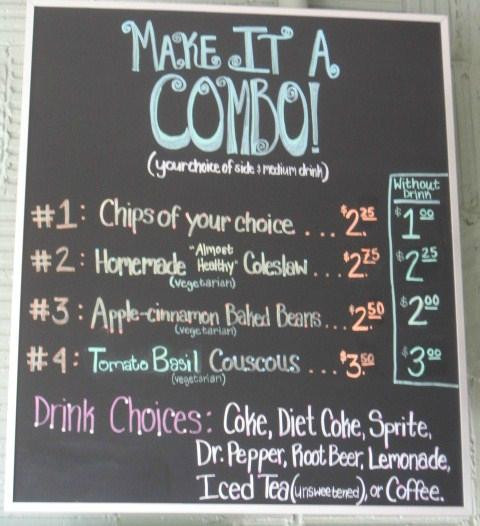 MAKE IT A
COMBO!
(your choice of side & medium drink)
Without Drink
#1: Chips of your choice . . . $2.25 $1.00
#2: Homemade "Almost Healthy" Coleslaw . . . $2.75 $2.25
(vegetarian)
#3: Apple-cinnamon Baked Beans . . . $2.50 $2.00
(vegetarian)
#4: Tomato Basil Couscous . . . $3.50 $3.00
(vegetarian)
Drink Choices: Coke, Diet Coke, Sprite,
Dr. Pepper, Root Beer, Lemonade,
Iced Tea (unsweetened), or Coffee.